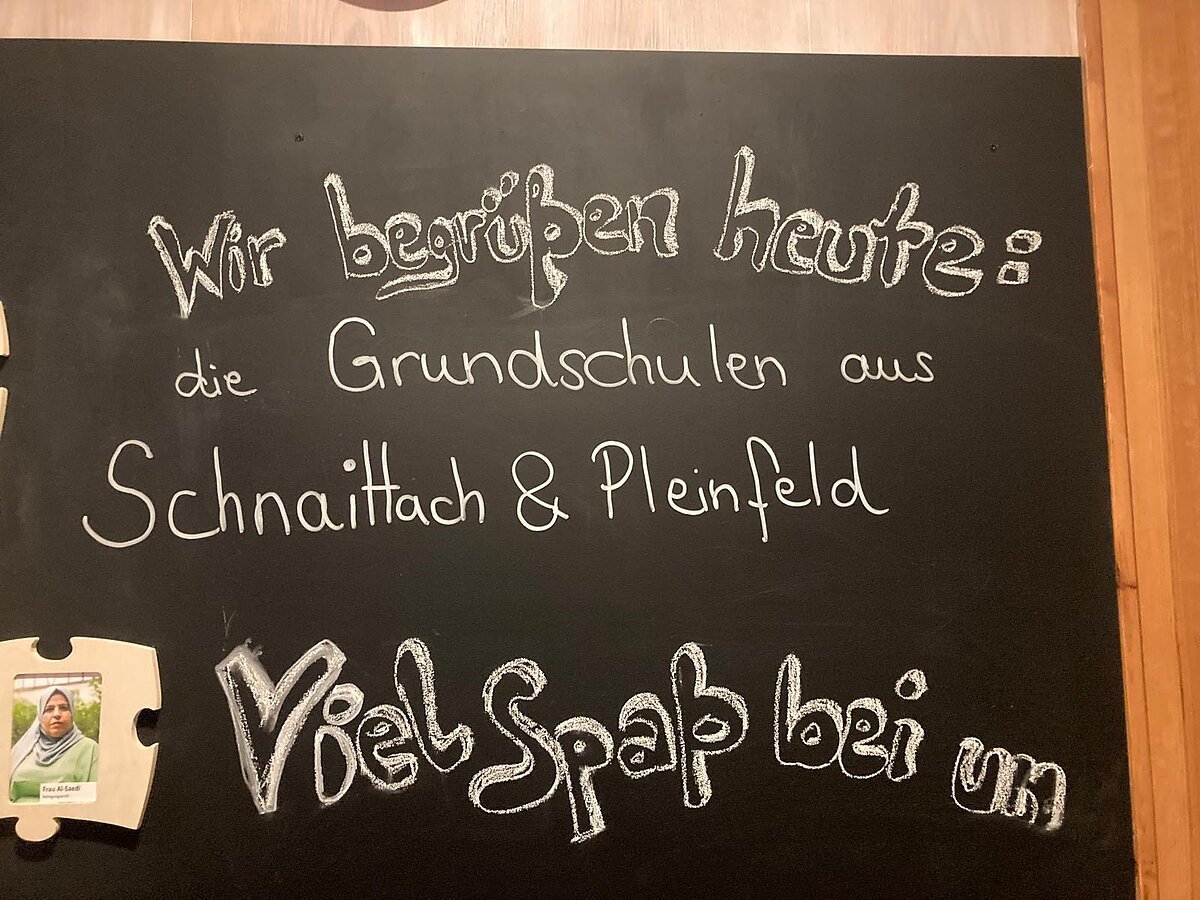 Wir begrüßen heute:
die Grundschulen aus
Schnaittach & Pleinfeld
Viel Spaß bei uns
Frau Al-Saedi